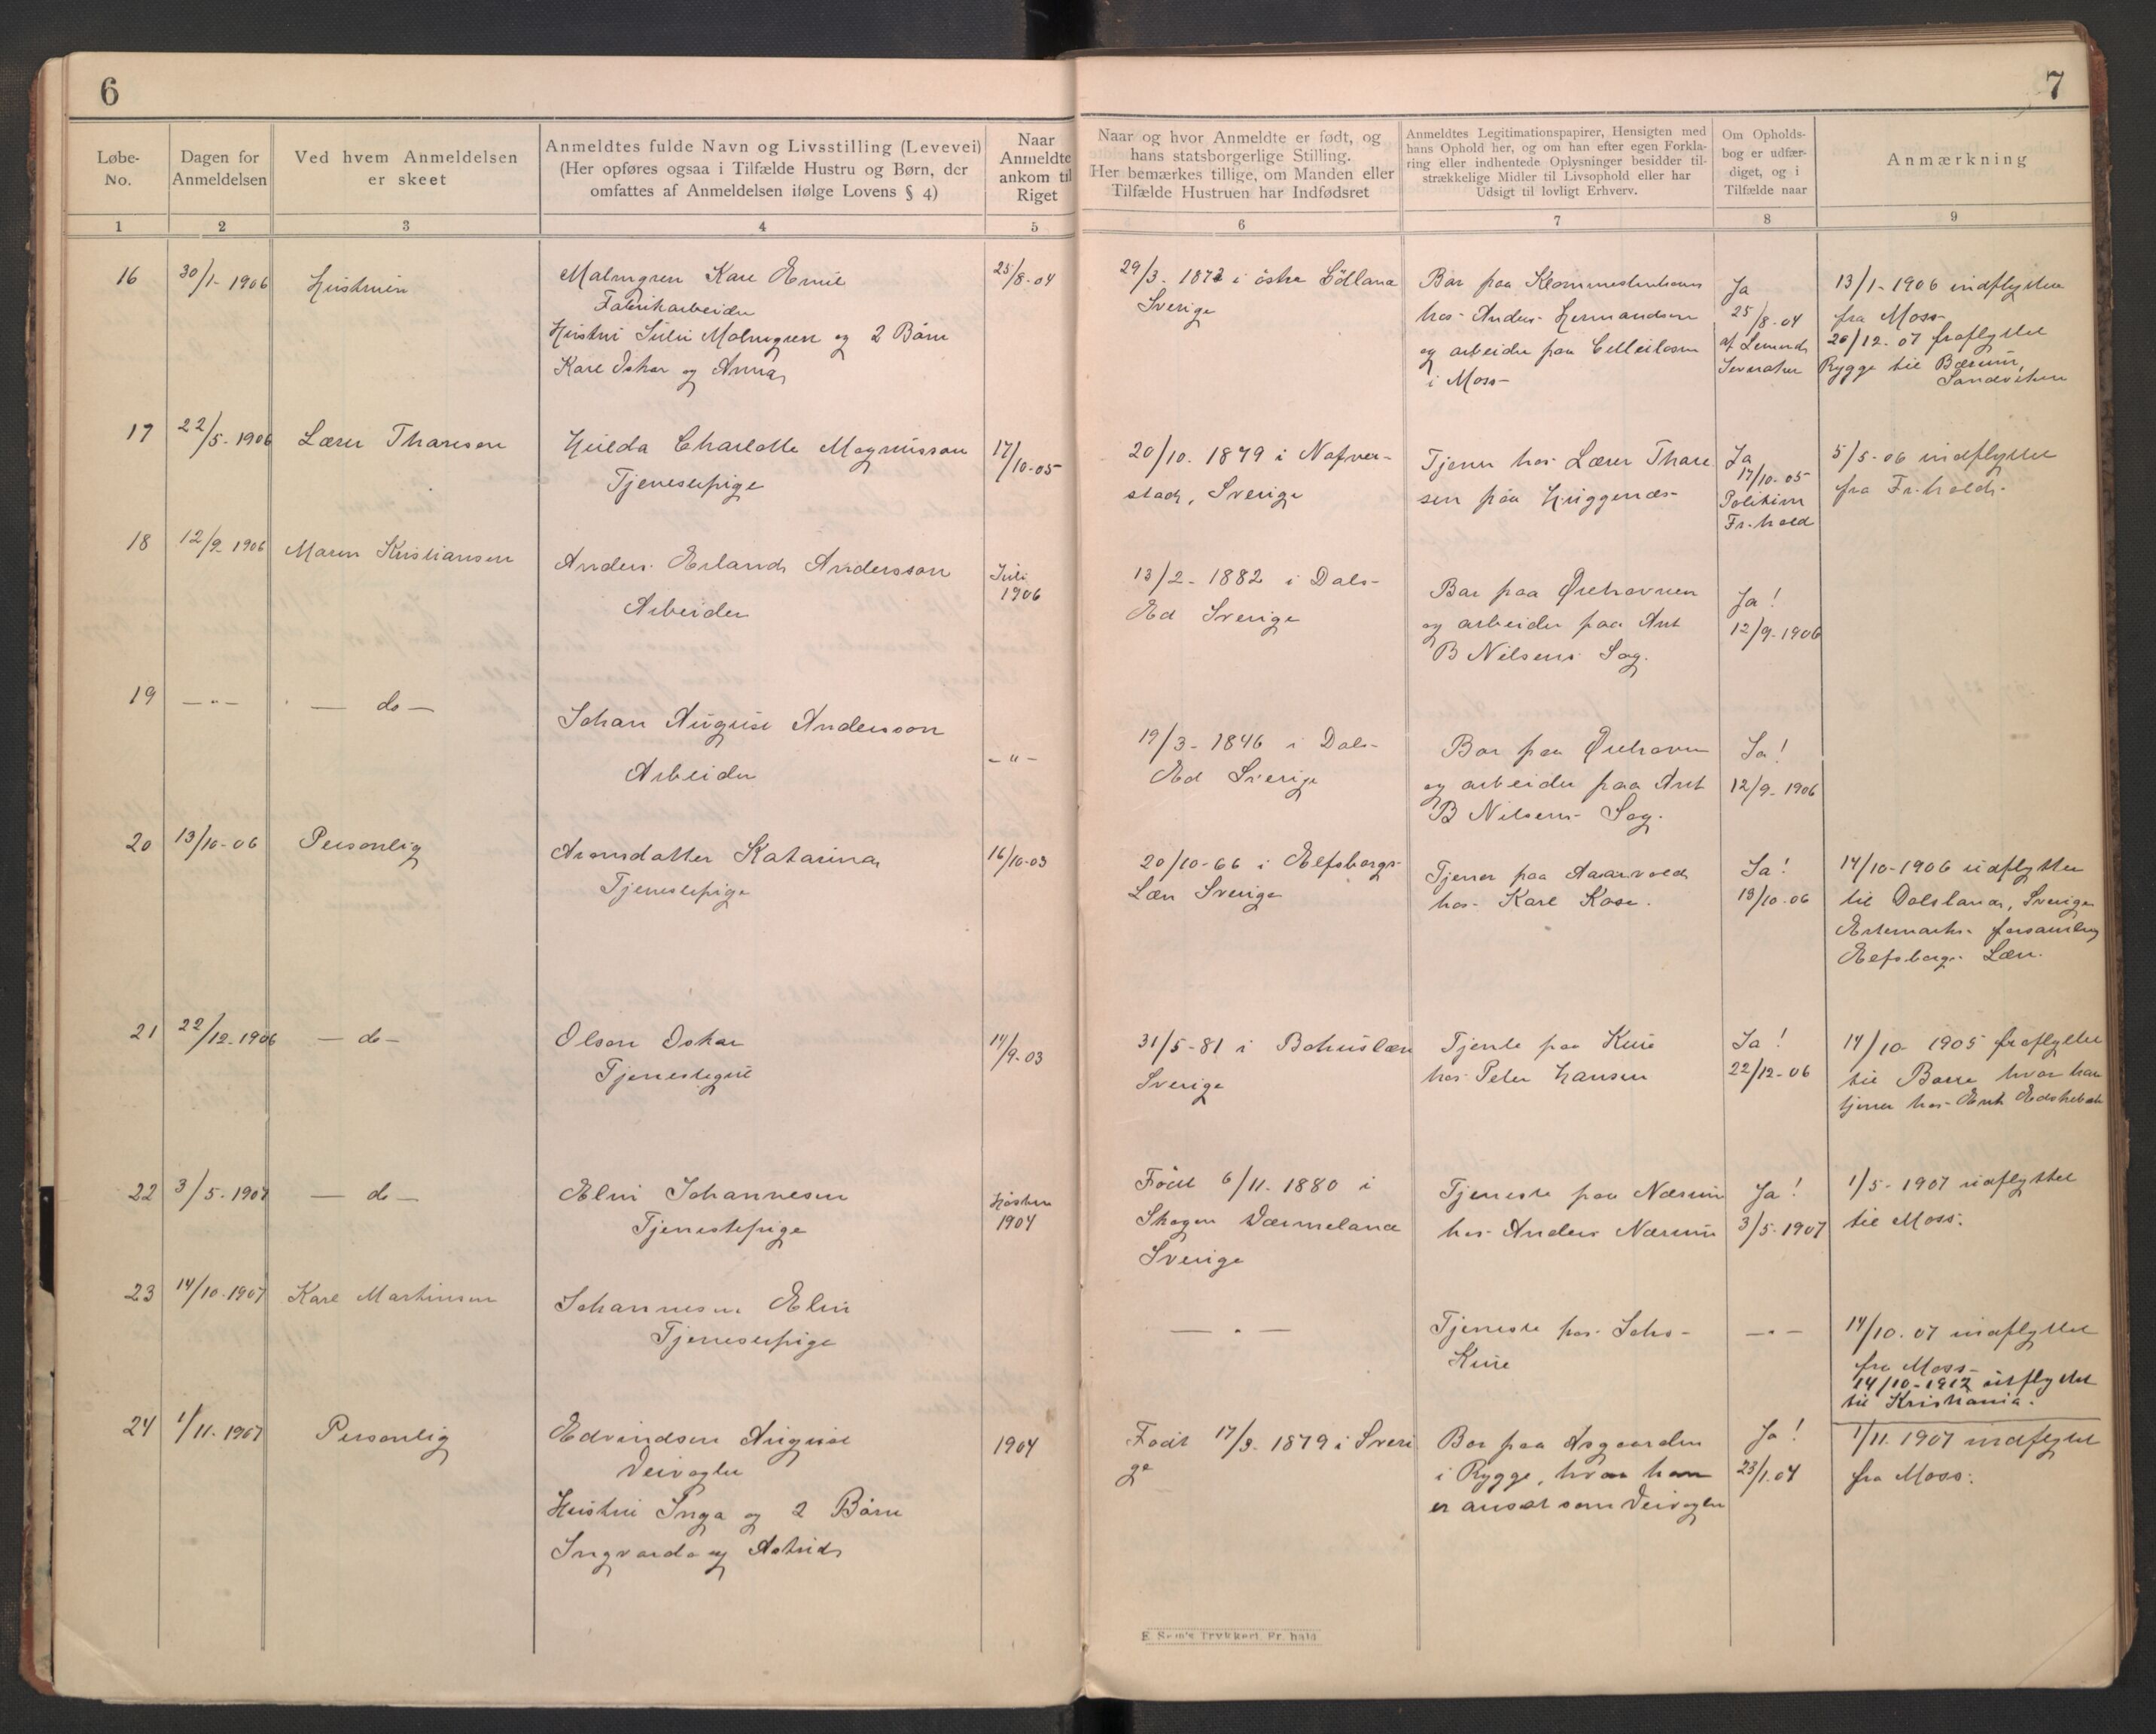 6
7
Løbe-
No.
Dagen for
Anmeldelsen
Ved hvem Anmeldelsen
er skeet
Anmeldtes fulde Navn og Livsstilling (Levevei)
(Her opføres ogsaa i Tilfælde Hustru og Børn, der
omfattes af Anmeldelsen ifølge Lovens § 4)
Naar
Anmeldte
ankom til
Riget
Naar og hvor Anmeldte er født, og
hans statsborgerlige Stilling.
Her bemærkes tillige, om Manden eller
Tilfælde Hustruen har Indfødsret
Anmeldtes Legitimationspapirer, Hensigten med
hans Ophold her, og om han efter egen Forkla-
ring eller indhentede Oplysninger besidder til-
strækkelige Midler til Livsophold eller har
Udsigt til lovligt Erhverv.
Om Opholds-
bog er udfær-
diget, og i
Tilfælde naar
Anmærkning
1 2 3 4 5 6 7 8 9
16
30/1-1906
Hustruen
Malmgren Karl Emil
Fabrikarbeider
Hustru Julie Malmgren og 2 Børn
Karl Oskar og Anna
25/8-04
29/3-1872 i östra
Sverige
Bor paa
hos Anders Hermandsen
og arbeider paa
i Moss
Ja
25/8-04
af
13/1-1906 indflyttet
fra Moss
26/12-07 fraflyttet
Rygge til Bærum,
Sandviken
17
22/5-1906
Lærer Thoresen
Hilda Charlotte Magnusson
Tjenestepige
17/10-05
20/10-1879 i Nafver-
stad, Sverige
Tjener hos Lærer Thore
sen paa Huggenæs
Ja
17/10-05
Politiken
Fr.hald
5/5-06 indflyttet
fra Fr.hald
18
12/9 1906
Maren Kristiansen
Anders Erland Andersson
Arbeider
Juli
1906
13/2-1882 i Dals-
Ed Sverige
Bor paa Ørehavnen
og arbeider paa Ant
B Nilsens Sag.
Ja!
12/9-1906
19
— " —
— do —
Johan August Andersson
Arbeider
— " —
19/3-1846 i Dals-
Ed Sverige
Bor paa Ørehavn
og arbeider paa Ant
B Nilsens Sag.
Ja!
12/9-1906
20
13/10-06
Personlig
Aronsdatter Katarina
Tjenestepige
16/10-03
20/10-66 i Elfsborgs
Læn Sverige
Tjener paa Aaarvold
hos Karl Kase.
Ja!
13/10-06
14/10-1906 udflyttet
til Dalsland, Sverige
forsamling
Elfsborgs Læn.
21
22/12-1906
— do —
Olsen Oskar
Tjenestegut
14/9-03
31/5-81 i Bohuslæn
Sverige
Tjente paa Kure
hos Peter Hansen
Ja!
22/12-06
14/10 1905 fraflyttet
til Borre hvor han
tjener hos
22
3/5-1907
— do —
Elin Johannesen
Tjenestepige
Høsten
1904
Født 6/11-1880 i
Skogen Värmeland
Sverige
Tjeneste paa Nærum
hos Anders Nærum
Ja!
3/5-1907
1/5-1907 udflyttet
til Moss.
23
14/10-1907
Karl Martinsen
Johannesen Elin
Tjenestepige
— " —
Tjeneste hos Johs
Kure
— " —
14/10-07 indflyttet
fra Moss
14/10-1912 utflyttet
til Kristiania.
24
1/11-1907
Personlig
Edvindsen August
Veivogter
Hustru Inga og 2 Børn
Ingvarda og Astrid
1904
Født 17/9-1879 i Sveri
ge
Bor paa Asgaarden
i Rygge, hvor han
er ansat som Veivogter
Ja!
23/1-04
1/11-1907 indflyttet
fra Moss.
E. Sem's Trykkeri, Fr. hald